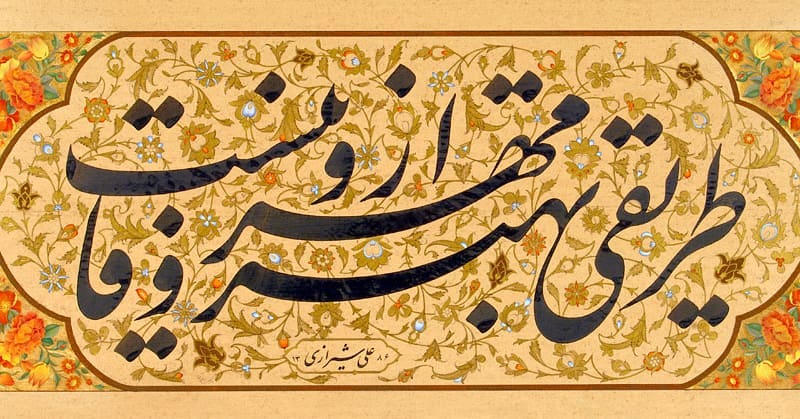 طریقی بهتر از مهر و وفا نیست
علی شیرازی ۱۳۸۶